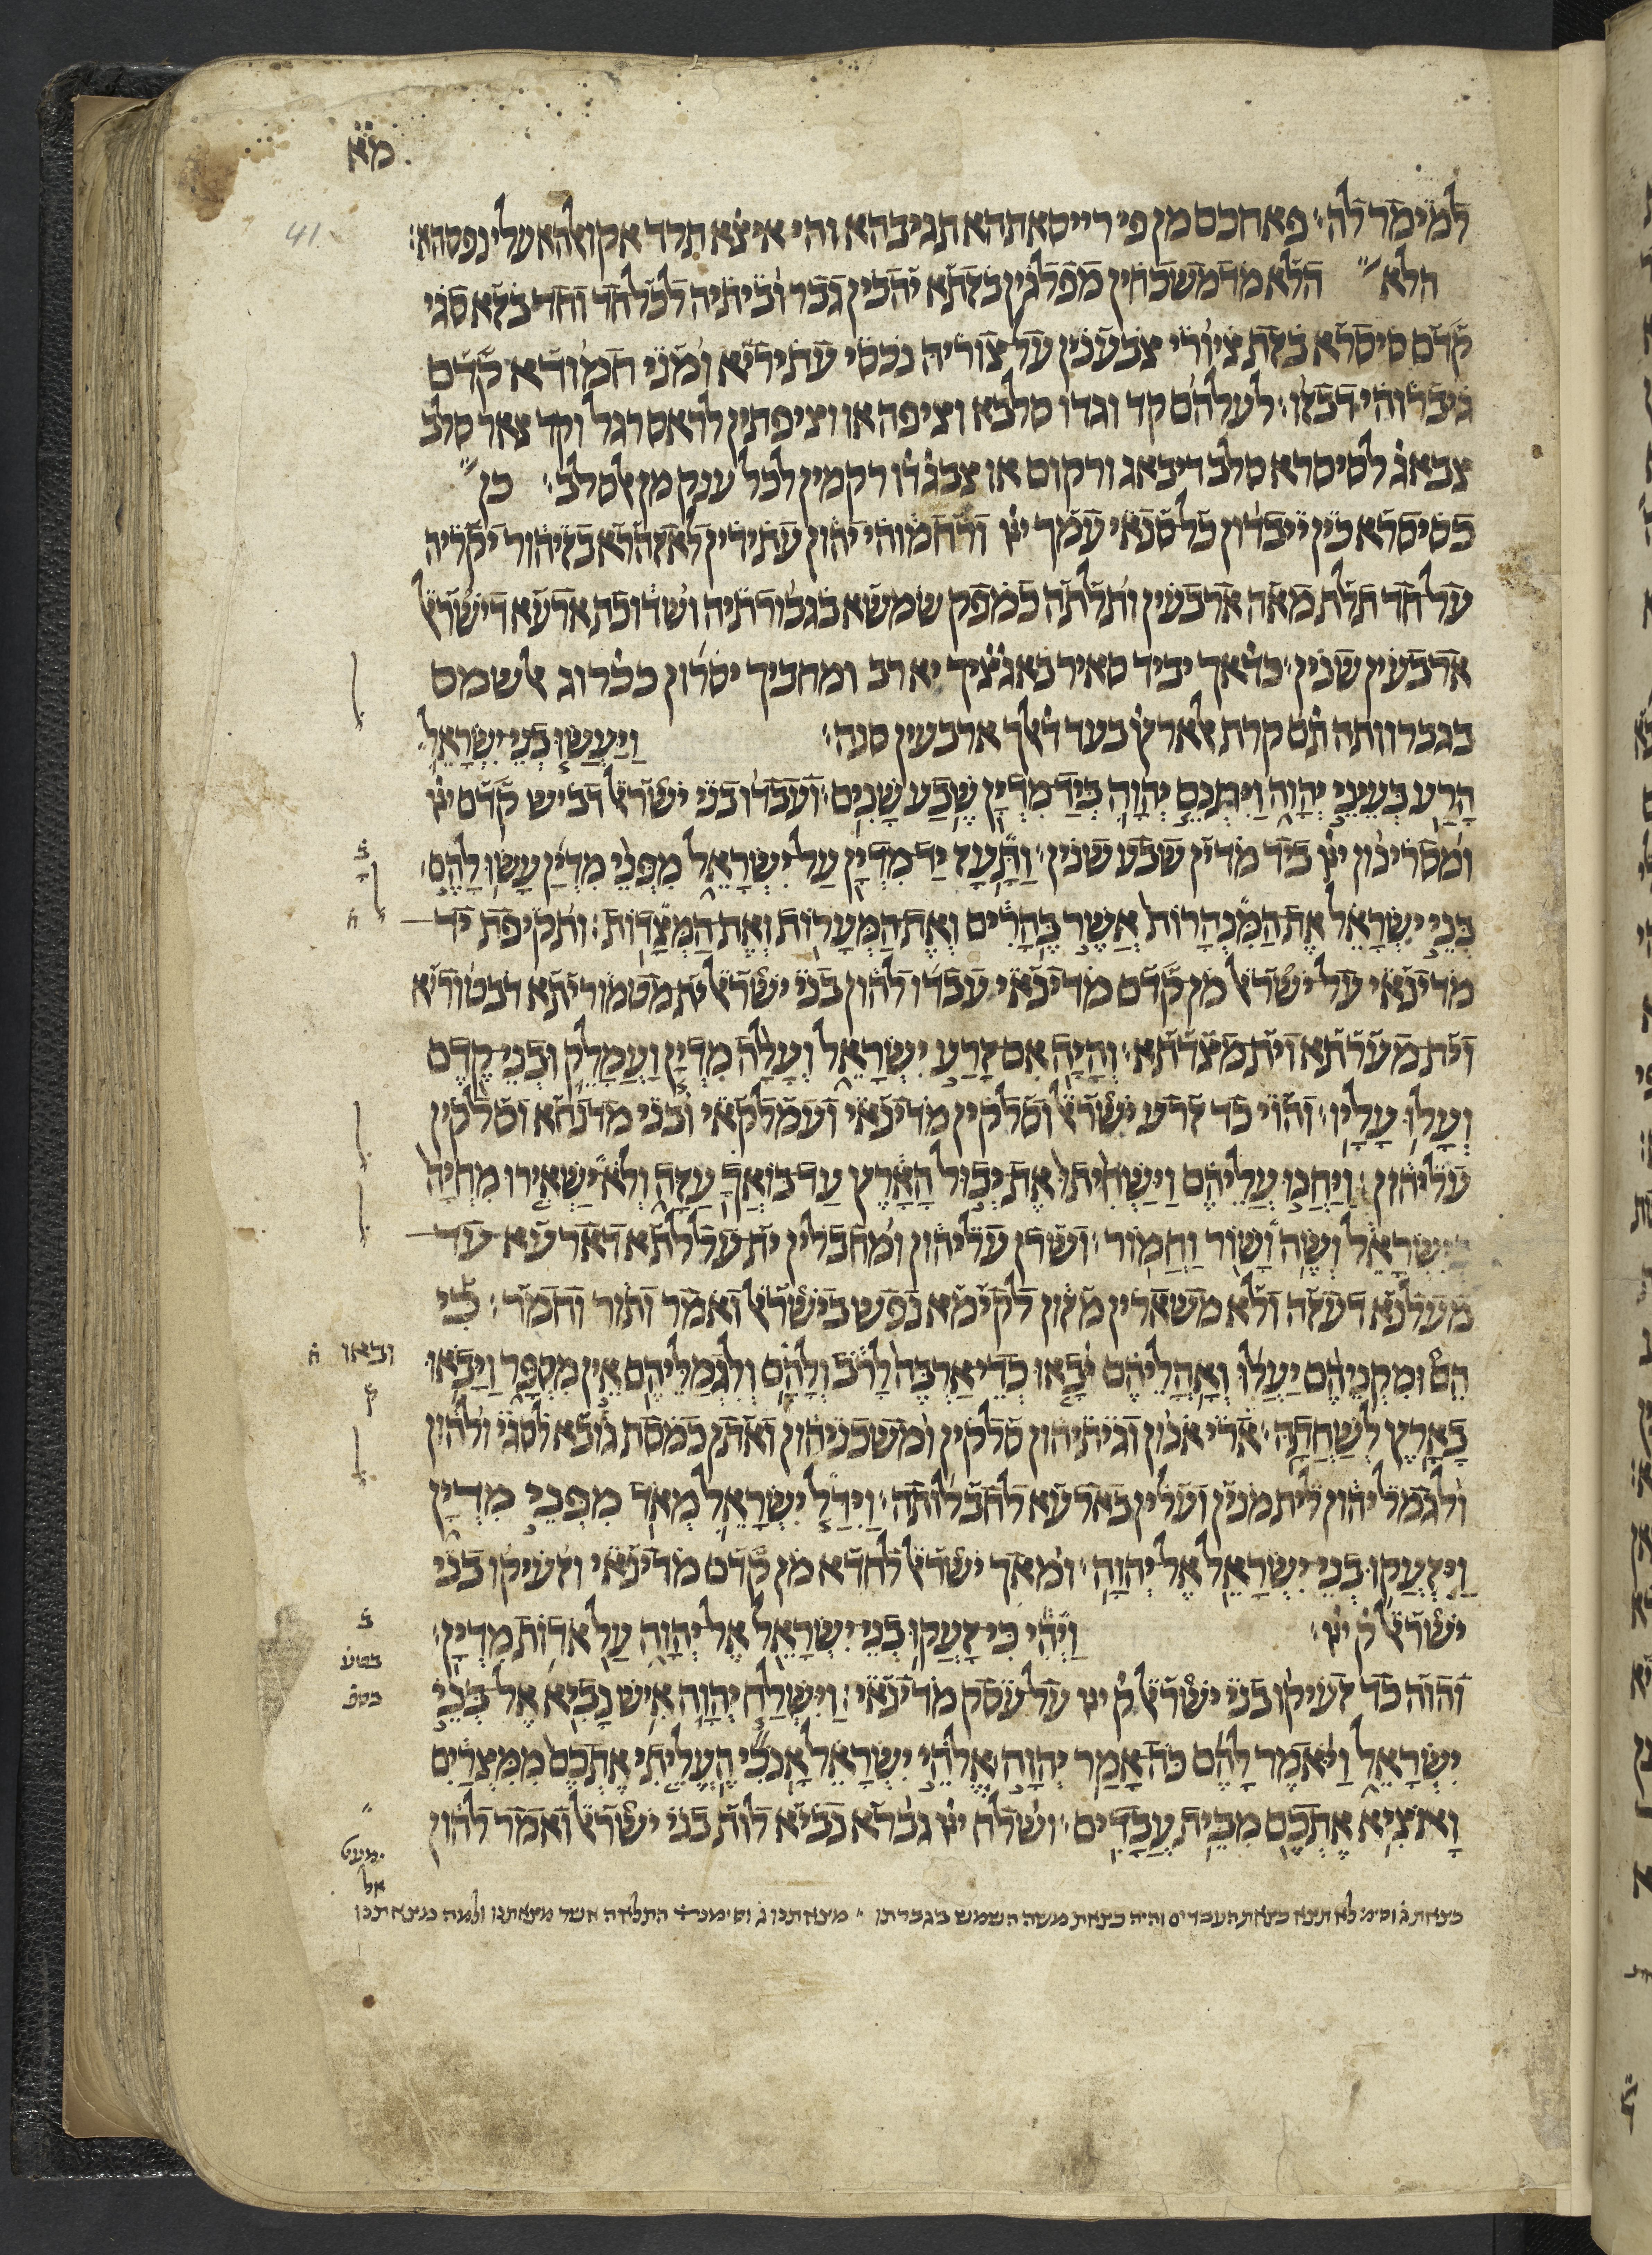 מא
41.
למימר לה׃ פאחכם מן פי רייסאתהא תגיבהא והי איצ̇א תרד אקואלהא עלי נפסהא׃
הלא הלא מדמשכחין מפלגין בזתא יהבין גבר וביתיה לכל חד וחד בזא סגי
קדם סיסרא בזת ציורי צבענין על צוריה נכסי עתיריא ומני חמודא קדם
גיברוהי דבזו׃ לעלהם קד וגדו סלבא וציפה או וציפתין לראס רגל וקד צאר סלב
צבאג̇ לסיסרא סלב דיבאג ורקום או צבג̇ו ורקמין לכל ענק מן אלסלב׃ כן
כסיסרא כין ייבדון כל סנאי עמך ייי ורחמוהי יהון עתידין לאזהרא בזיהור יקריה
על חד תלת מאה ארבעין ותלתה כמפק שמשא בגבורתיה ושדוכת ארעא דישראל
ארבעין שנין׃ כד̇אך יביד סאיר באגצ̇יך יא רב ומחביך יסרון ככ̇רוג אלשמס
בגברוותה תם קרת אלארץ̇ בעד ד̇אלך ארבעין סנה׃ ויעשו בני ישראל
הרע בעיני יהוה ויתנם יהוה ביד מדין שבע שנים׃ ועבדו בני ישראל דביש קדם ייי
ומסרינון ייי ביד מדין שבע שנין׃ ותעז יד מדין על ישראל מפני מדין עשו להם
בני ישראל את המנהרות אשר בהרים ואת המערות ואת המצדות׃ ותקיפת יד
מדינאי על ישראל מן קדם מדינאי עבדו להון בני ישראל ית מטמוריתא דבטוריא
וית מערתא וית מצדתא׃ והיה אם זרע ישראל ועלה מדין ועמלק ובני קדם
ועלו עליו׃ והוי כד זרע ישראל וסלקין מדינאי ועמלקאי ובני מדנחא וסלקין
עליהון׃ ויחנו עליהם וישחיתו את יבול הארץ עד בואך עזה ולא ישאירו מחיה
בישראל ושה ושור וחמור׃ ושרן עליהון ומחבלין ית עללתא דארעא עד
מעלנא דעזה ולא משארין מזון לקימא נפש בישראל ואמר ותור וחמר׃ כי
הם ומקניהם יעלו ואהליהם יבאו כדי ארבה לרב ולהם ולגמליהם אין מספר ויבאו
בארץ לשחתה׃ ארי אנון וגיתיהון סלקין ומשכניהון ואתן כמסת גובא לסגי ולהון
ולגמליהון לית מנין ועלין בארעא לחבלותה׃ וידל ישראל מאד מפני מדין
ויזעקו בני ישראל אל יהוה׃ ומאך ישראל לחדא מן קדם מדינאי וזעיקו בני
ישראל ק׳ ייי׃ ויהי כי זעקו בני ישראל אל יהוה על אדות מדין׃
והוה כד זעיקו בני ישראל ק׳ ייי על עסק מדינאי׃ וישלח יהוה איש נביא אל בני
ישראל ויאמר להם כה אמר יהוה אלהי ישראל אנכי העליתי אתכם ממצרים
ואציא אתכם מבית עבדים׃ ושלח ייי גברא נביא לות בני ישראל ואמר להון
ובאו
ק
בטע
בספ̇
כצאת ג̇ וסימ׳ לא תצא כצאת העבדים והיה כצאת משה השמש בגברתו מצאתנו ג̇ וסימנ׳ התלאה אשר מצאתנו ולמה מצאתנו